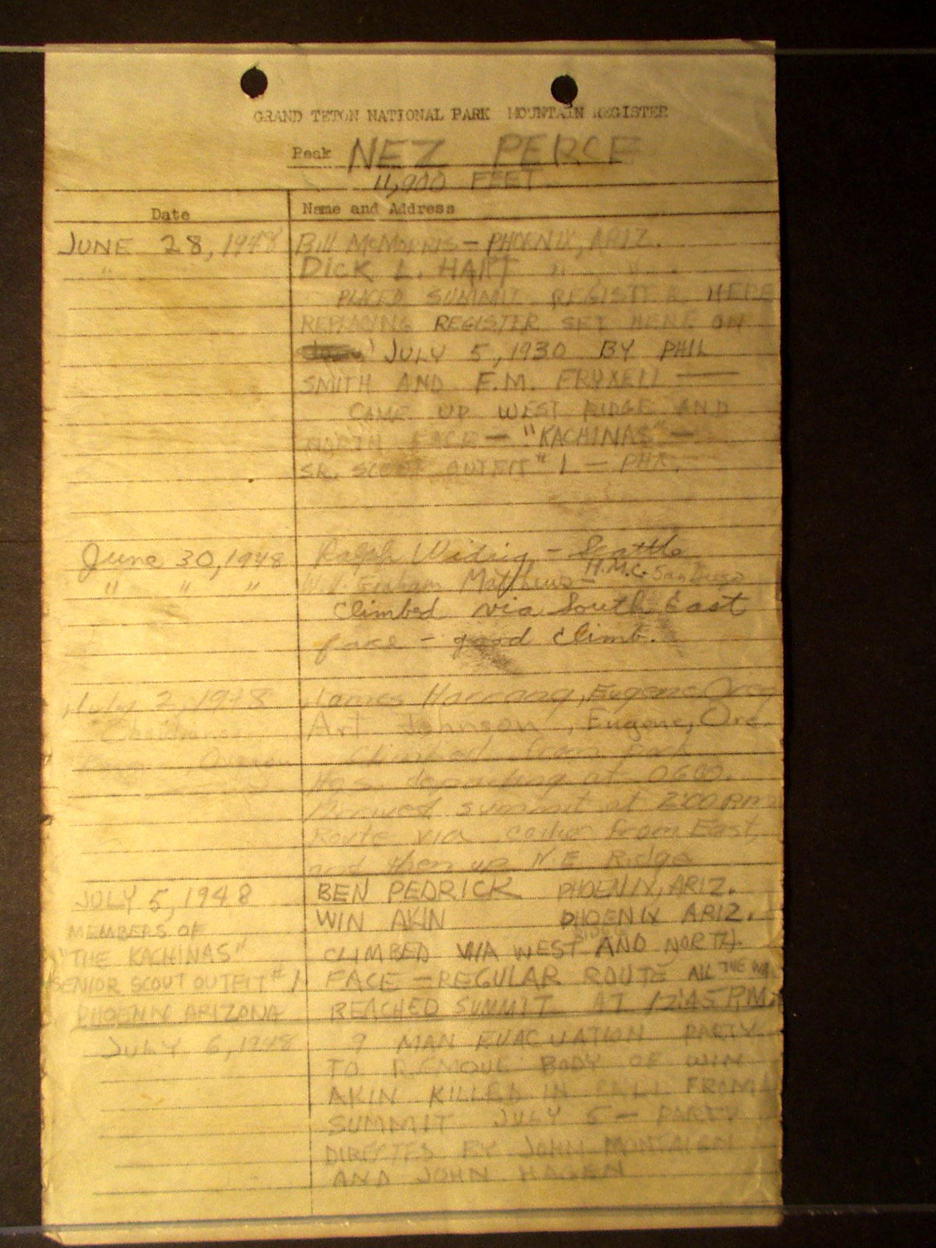 GRAND TETON NATIONAL PARK MOUNTAIN REGISTER
Peak NEZ PERCE
11,900 FEET
Date Name and Address
JUNE 28, 1948 Bill McMorris - PHOENIX, ARIZ.
" DICK L. HART " " "
PLACED SUMMIT REGISTER HERE
REPLACING REGISTER SET HERE ON
JULY 5, 1930 BY PHIL
SMITH AND F.M. FRYXELL —
CAME UP WEST RIDGE AND
NORTH FACE - "KACHINAS" -
SR. SCOUT OUTFIT #1 - PHX.
June 30, 1948 Ralph Widrig - Seattle
" " " Graham Matthews - H.M.C. San Diego
Climbed via South East
face - good climb.
July 2, 1948 James Harrang, Eugene, Oreg
Art Johnson, Eugene, Ore.
Oregon Climbed from Park
Hqs. departing at 0600.
Arrived summit at 2:00 PM
Route via from East,
and then up N.E. Ridge
JULY 5, 1948 BEN PEDRICK PHOENIX, ARIZ.
MEMBERS OF WIN AKIN PHOENIX ARIZ.
"THE KACHINAS" CLIMBED VIA WEST RIDGE AND NORTH
SENIOR SCOUT OUTFIT #1 FACE - REGULAR ROUTE ALL THE WAY
PHOENIX ARIZONA REACHED SUMMIT AT 12:45 P.M.
JULY 6, 1948 9 MAN EVACUATION PARTY
TO REMOVE BODY OF WIN
AKIN KILLED IN FALL FROM
SUMMIT JULY 5 - PARTY
DIRECTED BY JOHN MONTAGN
AND JOHN HAGEN